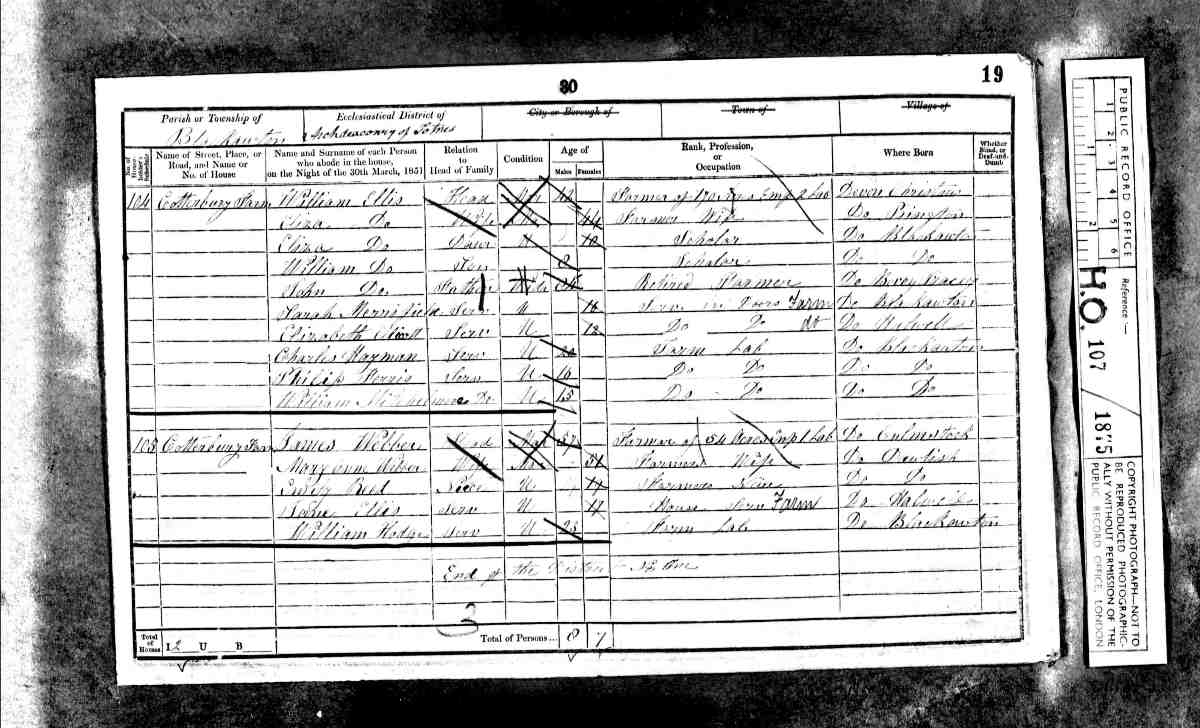 30
19
Parish or Township of
Blackawton
Ecclesiastical District of
Archdeaconry of Totnes
City or Borough of
Town of
Village of
No. of House-holder's Schedule
Name of Street, Place, or Road, and Name or No. of House
Name and Surname of each Person who abode in the house, on the Night of the 30th March, 1851
Relation to Head of Family
Condition
Age of
Males
Females
Rank, Profession, or Occupation
Where Born
Whether Blind, or Deaf-and-Dumb
104 Cotterbury Farm William Ellis Head Mar 42 Farmer of Acres Emp 2 Lab Devon
Eliza Do Wife Mar 44 Farmers Wife Do
Eliza Do Daur U 10 Scholar Do Blackawton
William Do Son 8 Scholar Do Do
John Do Father Retired Farmer Do Bovey Tracey
Sarah Merrifield Serv U 16 Serv in Doors Farm Do Blackawton
Elizabeth Serv U 12 Do Do do Do
Charles Serv U 20 Farm Lab Do Blackawton
Philip Serv U 16 Do Do Do Do
William Do U 15 Do Do Do Do
105 Cotterbury Farm James Webber Head Mar 37 Farmer of 54 Acres Emp 1 Lab Do Culmstock
Mary Anne Webber Wife Mar 51 Farmers Wife Do
Emily Reed Niece U 14 Farmers Niece Do Do
Jane Ellis Serv U 17 House Serv Farm Do
William Hodge Serv U 23 Farm Lab Do Blackawton
End of the District
3
Total of Houses
I 2 U B
Total of Persons... 8 7
PUBLIC RECORD OFFICE
1 2 3 4 5 6
1 2
Reference :-
H.O. 107
1875
COPYRIGHT PHOTOGRAPH—NOT TO
BE REPRODUCED PHOTOGRAPHIC-
ALLY WITHOUT PERMISSION OF THE
PUBLIC RECORD OFFICE, LONDON